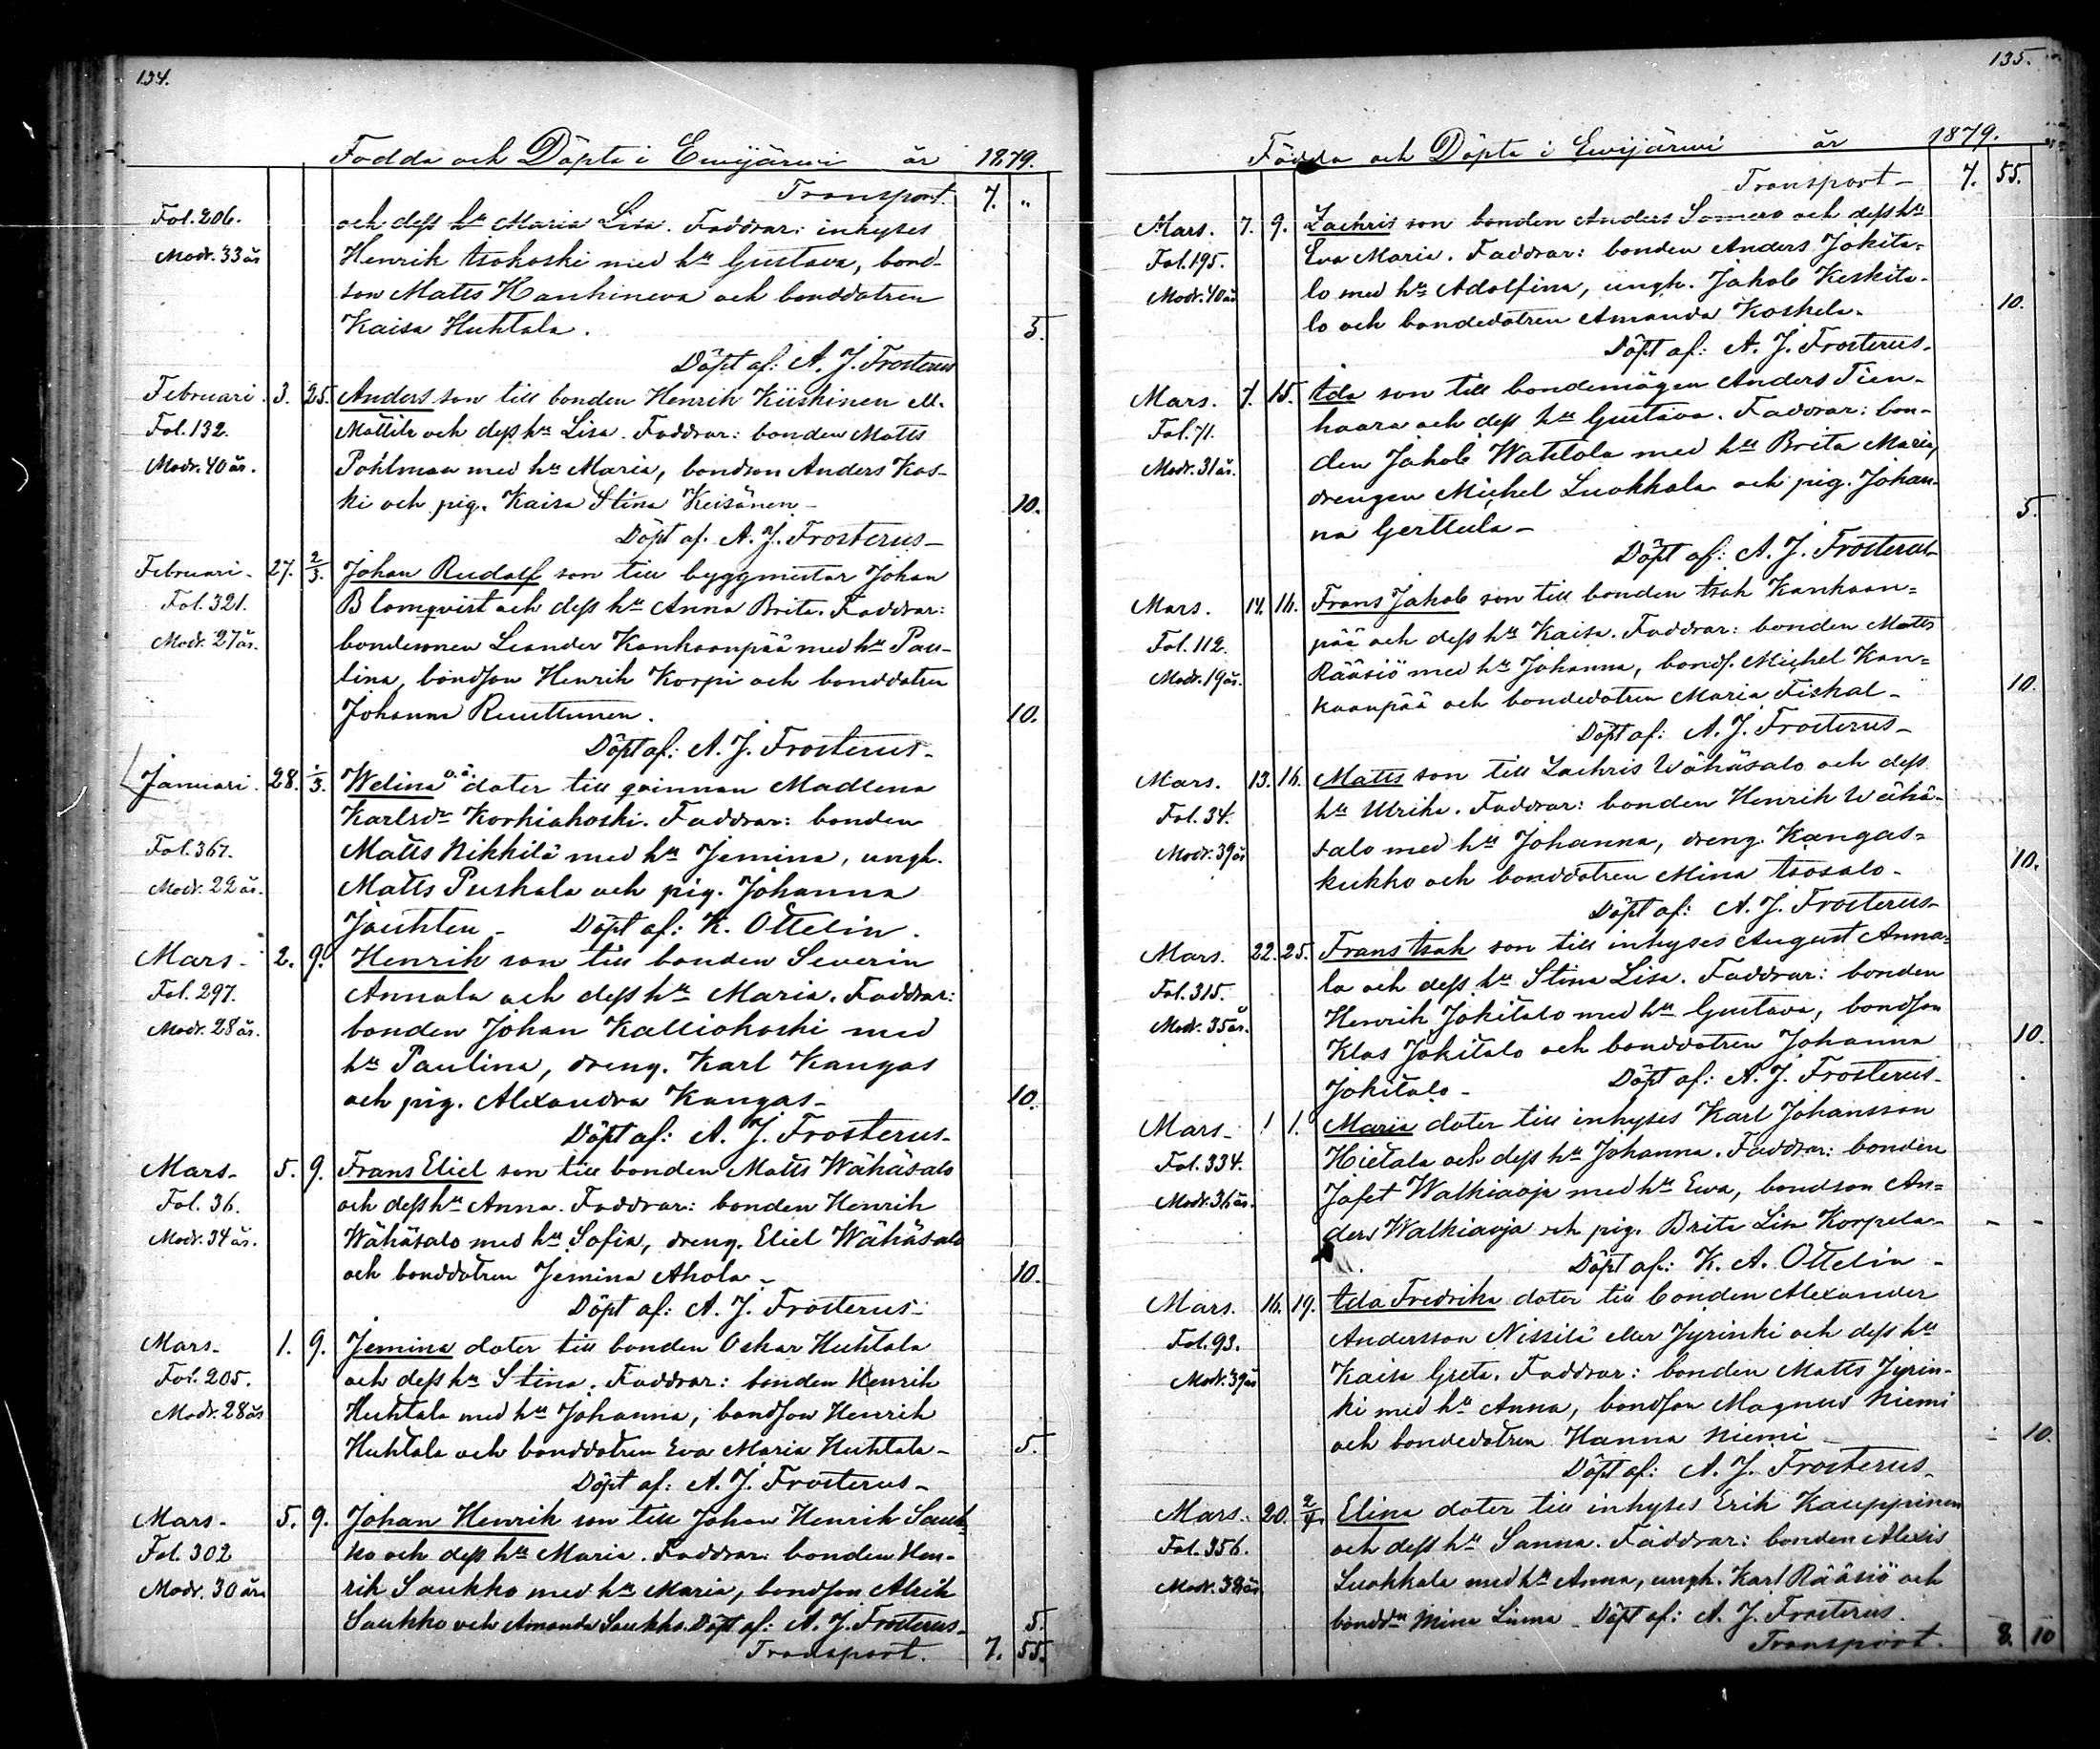 134.
Födda och Döpta i Ewijärwi år 1879.
Transport. 7. "
Fol. 206. och dess hu Maria Lisa. Faddrar: inhyses
Modr. 33 år Henrik Isokoski med hu Gustava, bond-
son Matts Hanhineva och bonddotren
Kaisa Huhtala. 5.
Döpt af: A. J. Frosterus
Februari. 3. 25. Anders son till bonden Henrik Kiiskinen ell.
Fol. 132. Mattila och dess hu Lisa. Faddrar: bonden Matts
Modr. 40 år. Pohlman med hu Maria, bondson Anders Kos-
ki och pig. Kaisa Stina Keisänen - 10.
Döpt af. A. J. Frosterus -
Februari - 27. 2/3. Johan Rudolf son till byggmestar Johan
Fol. 321. Blomqvist och dess hu Anna Brita. Faddrar:
Modr. 27 år. bondemen Leander Kankaanpää med hu Pau-
lina, bondson Henrik Korpi och bonddotren
Johanna Ruuttunen. 10.
Döpt af: A. J. Frosterus -
Januari. 28. 1/3. Welina o.ä. doter till qvinnan Madlena
Karlsdr Korkiakoski. Faddrar: bonden
Fol. 367. Matts Nikkilä med hu Jemina, ungk.
Modr. 22 år. Matts Puskala och pig. Johanna
Jauhten - Döpt af: K. Ottelin.
Mars - 2. 9. Henrik son till bonden Severin
Fol. 297. Annala och dess hu Maria. Faddrar:
Modr. 28 år. bonden Johan Kalliokoski med
hu Paulina, dreng. Karl Kangas
och pig. Alexandra Kangas - 10.
Döpt af: A. J. Frosterus -
Mars - 5. 9. Frans Eliel son till bonden Matts Wähäsalo
Fol. 36. och dess hu Anna. Faddrar: bonden Henrik
Modr. 34 år. Wähäsalo med hu Sofia, dreng. Eliel Wähäsalo
och bonddotren Jemina Ahola - 10.
Döpt af: A. J. Frosterus -
Mars - 1. 9. Jemina doter till bonden Oskar Huhtala
Fol. 205. och dess hu Stina. Faddrar: bonden Henrik
Modr. 28 år Huhtala med hu Johanna, bondson Henrik
Huhtala och bonddotren Eva Maria Huhtala - 5.
Döpt af: A. J. Frosterus -
Mars - 5. 9. Johan Henrik son till Johan Henrik Sauk-
Fol. 302 ko och dess hu Maria. Faddrar: bonden Hen-
Modr. 30 år rik Saukko med hu Maria, bondson Alrik
Saukko och Amanda Saukko. Döpt af: A. J. Frosterus - 5.
Transport. 7. 55.
135.
Födda och Döpta i Ewijärwi år 1879.
Transport - 7. 55.
Mars. 7. 9. Zachris son bonden Anders Somero och dess hu
Fol. 195. Eva Maria. Faddrar: bonden Anders Jokita=
Modr. 40 år lo med hu Adolfina, ungk. Jakob Keskita-
lo och bondedotren Amanda Koskela - 10.
Döpt af: A. J. Frosterus -
Mars. 7. 15. Ida son till bondemågen Anders Tien-
Fol. 71. haara och dess hu Gustava. Faddrar: bon-
Modr. 31 år. den Jakob Wahtola med hu Brita Maria,
drengen Michel Luokkala och pig. Johan-
na Gerttula - 5.
Döpt af: A. J. Frosterus
Mars. 14. 16. Frans Jakob son till bonden Isak Kankaan=
Fol. 112. pää och dess hu Kaisa. Faddrar: bonden Matts
Modr. 19 år. Rääsiö med hu Johanna, bonds. Michel Kan=
kaanpää och bondedotren Maria Fiskal - 10.
Döpt af: A. J. Frosterus -
Mars. 13. 16. Matts son till Zachris Wähäsalo och dess
Fol. 34. hu Ulrika. Faddrar: bonden Henrik Wähä-
Modr. 39 år salo med hu Johanna, dreng. Kangas=
kukko och bonddotren Mina Isosalo - 10.
Döpt af: A. J. Frosterus -
Mars. 22. 25. Frans Isak son till inhyses August Anna=
Fol. 315. la och dess hu Stina Lisa. Faddrar: bonden
Modr. 35 år. Henrik Jokitalo med hu Gustava, bondson
Klas Jokitalo och bonddotren Johanna 10.
Jokitalo - Döpt af: A. J. Frosterus -
Mars - 1 1. Maria doter till inhyses Karl Johansson
Fol. 334. Hietala och dess hu Johanna. Faddrar: bonden
Modr. 36 år. Jafet Walkiaoja med hu Ewa, bondson An=
ders Walkiaoja och pig. Brita Lisa Korpela - - -
Döpt af: K. A. Ottelin -
Mars. 16. 19. Ida Fredrika doter till bonden Alexander
Fol. 93. Andersson Nissilä eller Jyrinki och dess hu
Modr. 39 år Kaisa Greta. Faddrar: bonden Matts Jyrin-
ki med hu Anna, bondson Magnus Niemi
och bondedotren Hanna Niemi - - 10.
Döpt af: A. J. Frosterus -
Mars. 20. 2/4. Elina doter till inhyses Erik Kauppinen
Fol. 356. och dess hu Sanna. Faddrar: bonden Alexis
Modr. 38 år Luokkala med hu Anna, ungk. Karl Rääsiö och
bonddn Mina Linna - Döpt af: A. J. Frosterus.
Transport. 8. 10